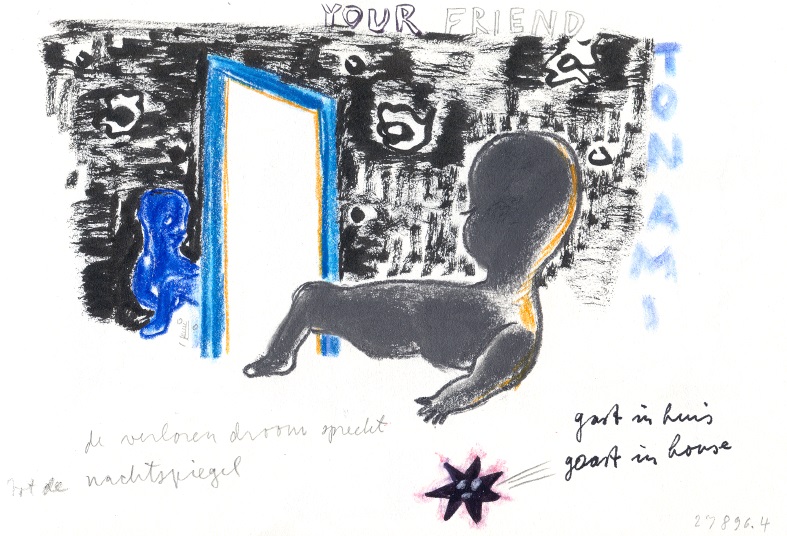 YOUR FRIEND
TONAMI
de verloren droom spreekt
tot de nachtspiegel
gast in huis
gaast in house
27896.4